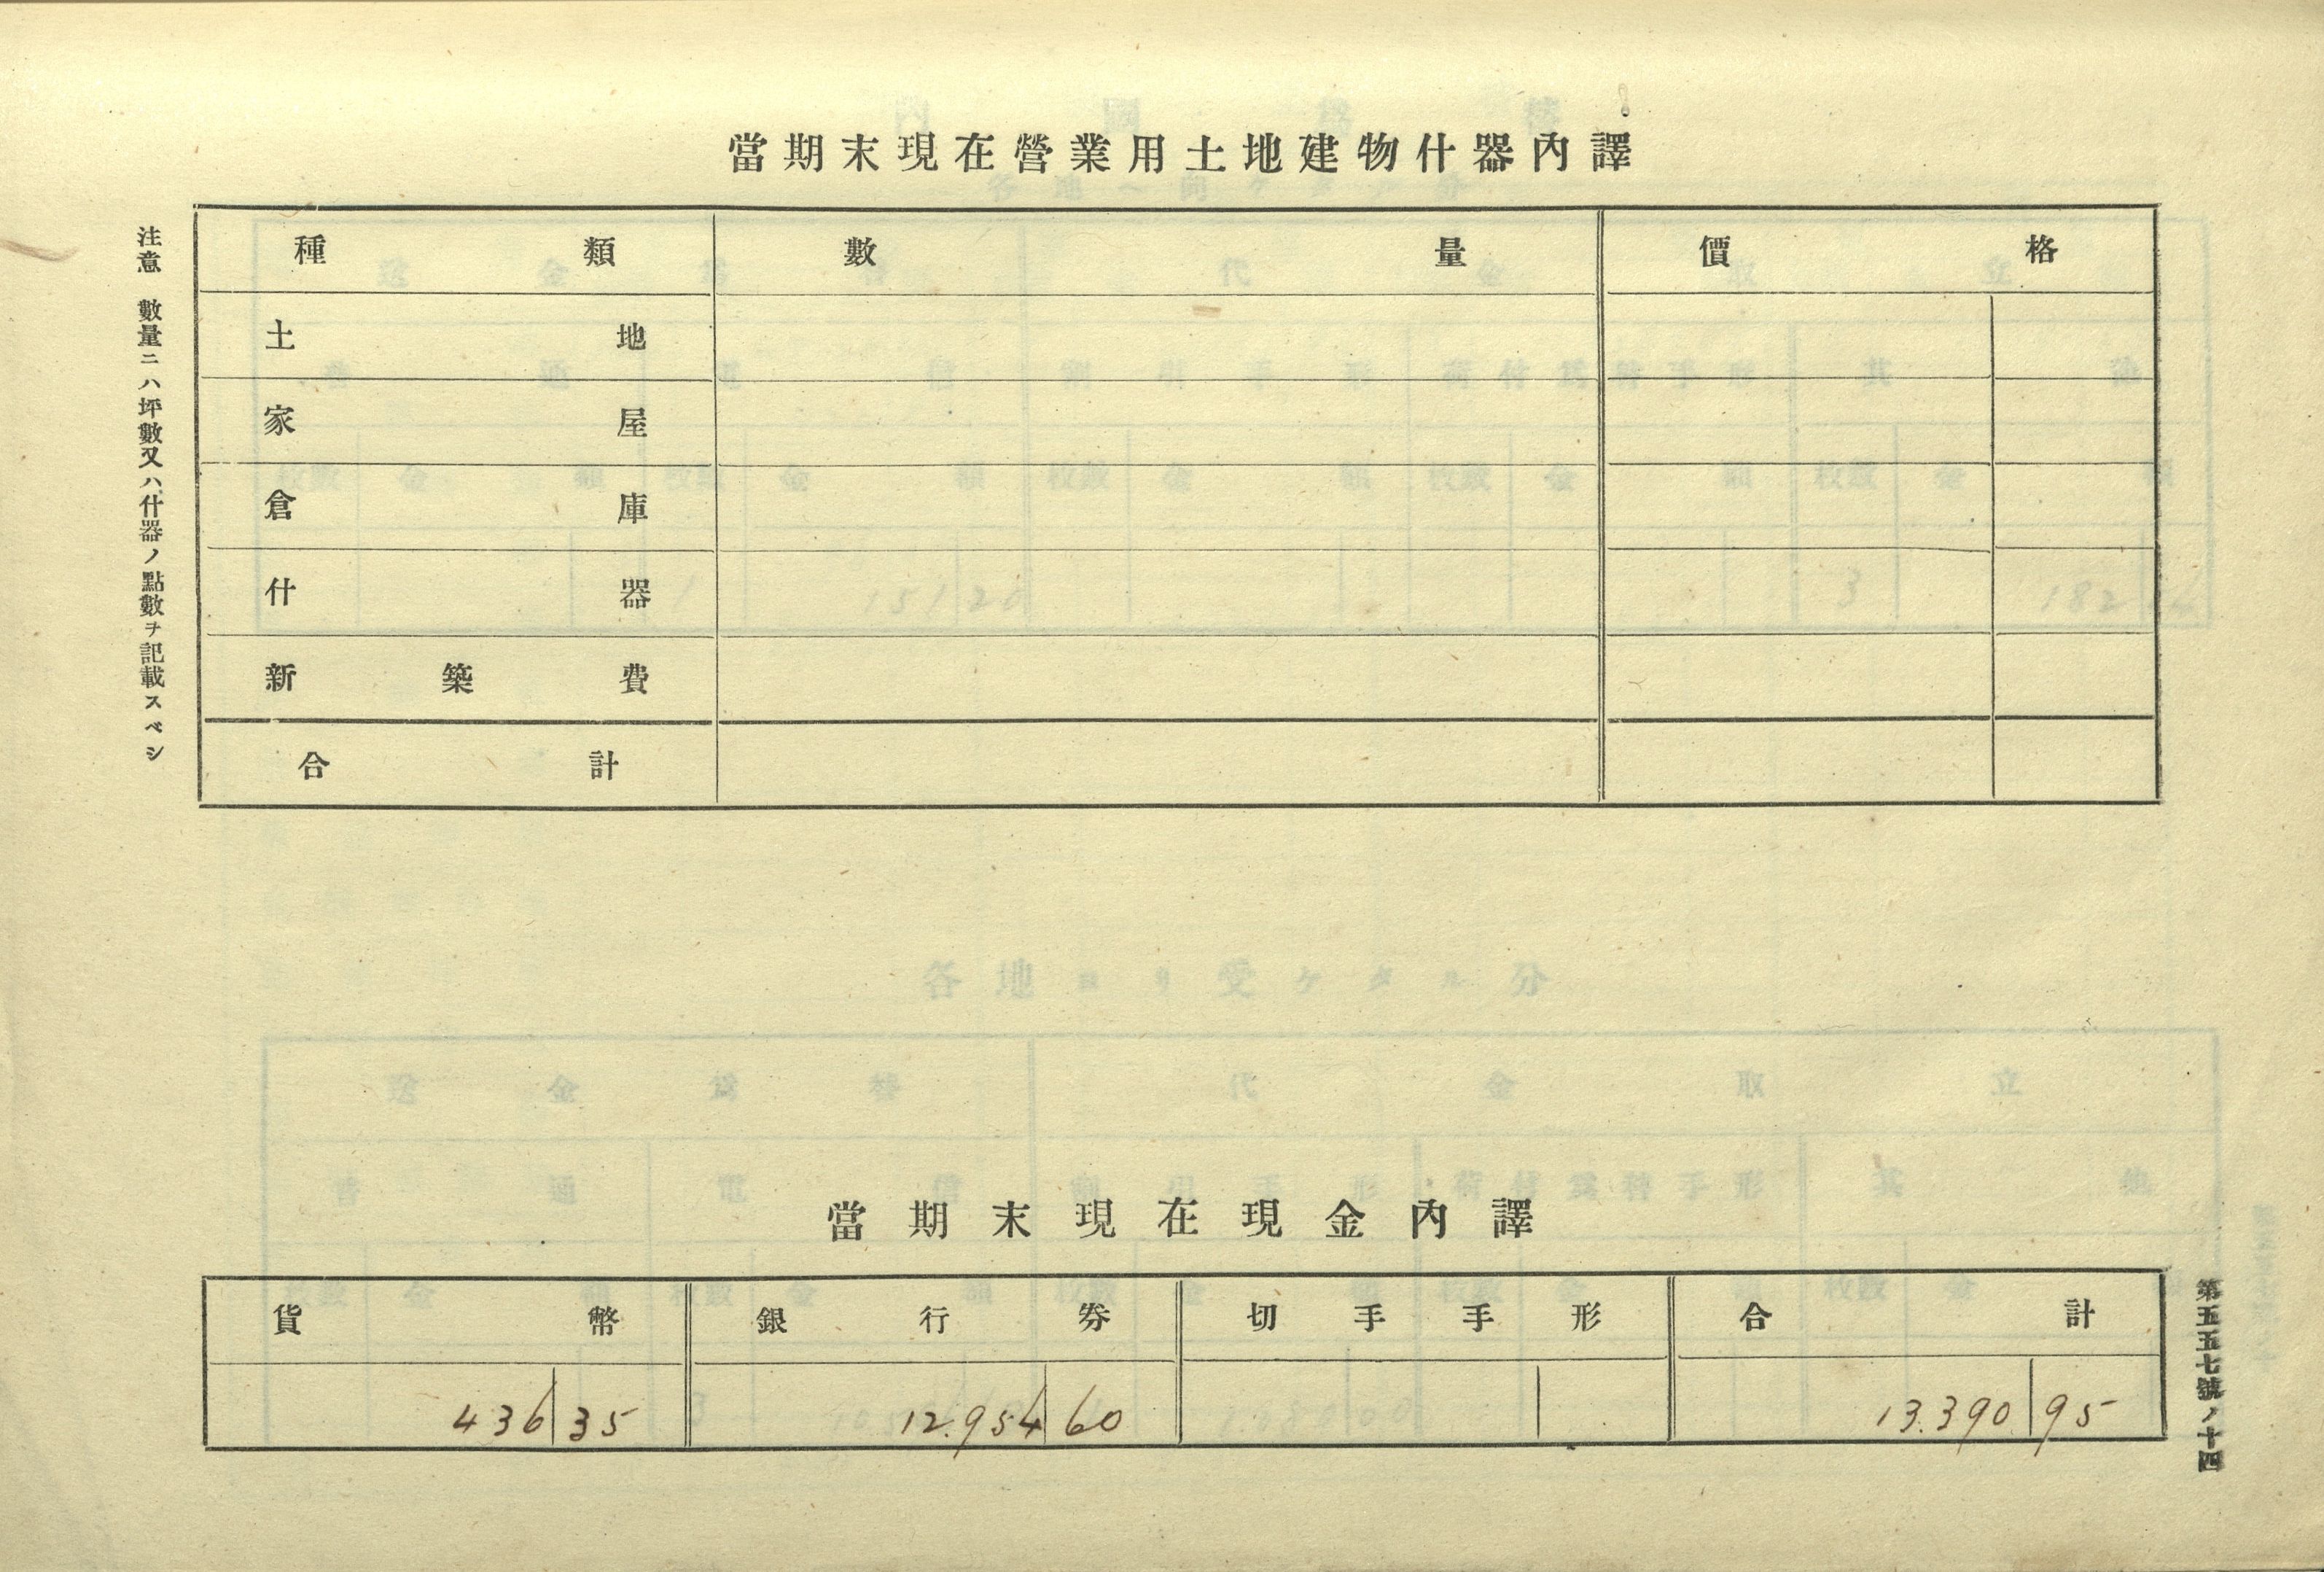 當期末現在營業用土地建物什器內譯
注意 數量ニハ坪數又ハ什器ノ點數ヲ記載スベシ
種類 數量 價格
土地
家屋
倉庫
什器
新築費
合計
當期末現在現金內譯
貨幣 銀行券 切手手形 合計
436 35 12.954 60 13.390 95
第五五七號ノ十四